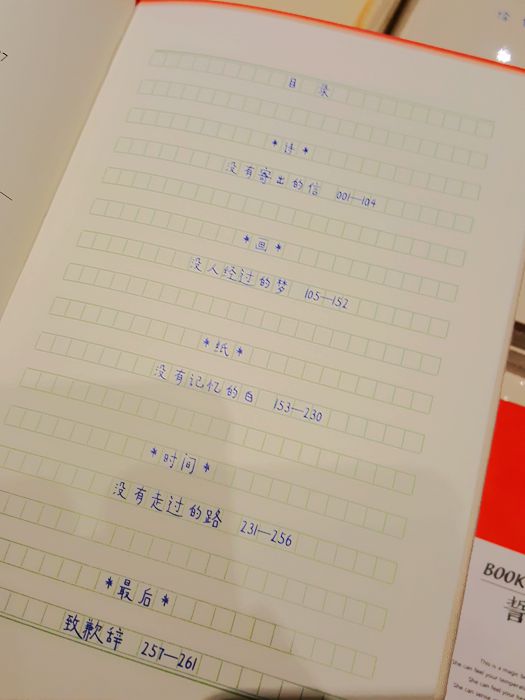 目 录
*诗*
没有寄出的信 001—104
*画*
没人经过的梦 105—152
*纸*
没有记忆的白 153—230
*时间*
没有走过的路 231—256
*最后*
致歉辞 257—261
BOOK
誓
This is a magic
She can feel your
She can feel your